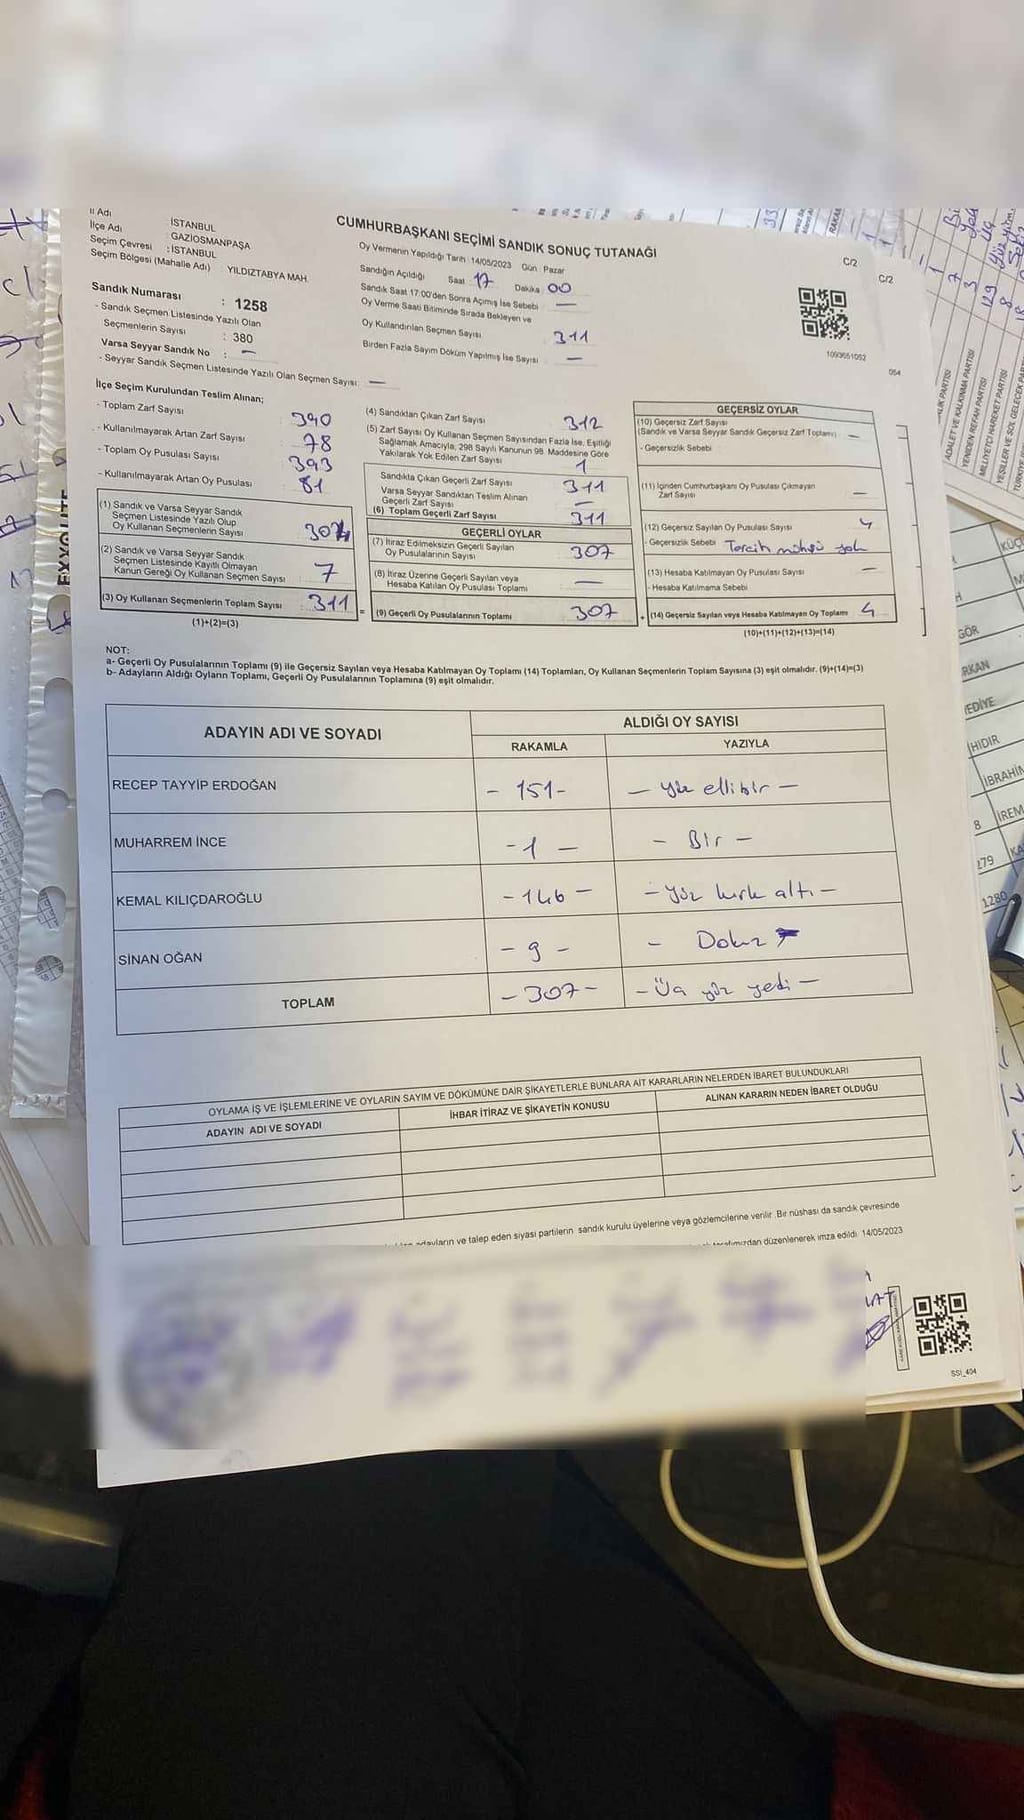 İl Adı
İSTANBUL
İlçe Adı
GAZİOSMANPAŞA
Seçim Çevresi : İSTANBUL
Seçim Bölgesi (Mahalle Adı) YILDIZTABYA MAH.
Sandık Numarası : 1258
- Sandık Seçmen Listesinde Yazılı Olan
Seçmenlerin Sayısı : 380
Varsa Seyyar Sandık No : —
- Seyyar Sandık Seçmen Listesinde Yazılı Olan Seçmen Sayısı: —
CUMHURBAŞKANI SEÇİMİ SANDIK SONUÇ TUTANAĞI
Oy Vermenin Yapıldığı Tarih 14/05/2023 Gün Pazar
Sandığın Açıldığı Saat 17 Dakika 00
Sandık Saat 17:00'den Sonra Açılmış İse Sebebi —
Oy Verme Saati Bitiminde Sırada Bekleyen ve
Oy Kullandırılan Seçmen Sayısı 311
Birden Fazla Sayım Döküm Yapılmış İse Sayısı —
C/2
C/2
1093651052
054
İlçe Seçim Kurulundan Teslim Alınan;
- Toplam Zarf Sayısı 390
- Kullanılmayarak Artan Zarf Sayısı 78
- Toplam Oy Pusulası Sayısı 393
- Kullanılmayarak Artan Oy Pusulası 81
(1) Sandık ve Varsa Seyyar Sandık
Seçmen Listesinde Yazılı Olup
Oy Kullanan Seçmenlerin Sayısı 304
(2) Sandık ve Varsa Seyyar Sandık
Seçmen Listesinde Kayıtlı Olmayan
Kanun Gereği Oy Kullanan Seçmen Sayısı 7
(3) Oy Kullanan Seçmenlerin Toplam Sayısı 311
(1)+(2)=(3)
(4) Sandıktan Çıkan Zarf Sayısı 312
(5) Zarf Sayısı Oy Kullanan Seçmen Sayısından Fazla İse, Eşitliği
Sağlamak Amacıyla, 298 Sayılı Kanunun 98. Maddesine Göre
Yakılarak Yok Edilen Zarf Sayısı 1
Sandıkta Çıkan Geçerli Zarf Sayısı 311
Varsa Seyyar Sandıktan Teslim Alınan
Geçerli Zarf Sayısı —
(6) Toplam Geçerli Zarf Sayısı 311
GEÇERLİ OYLAR
(7) İtiraz Edilmeksizin Geçerli Sayılan
Oy Pusulalarının Sayısı 307
(8) İtiraz Üzerine Geçerli Sayılan veya
Hesaba Katılan Oy Pusulası Toplamı —
= (9) Geçerli Oy Pusulalarının Toplamı 307
GEÇERSİZ OYLAR
(10) Geçersiz Zarf Sayısı
(Sandık ve Varsa Seyyar Sandık Geçersiz Zarf Toplamı) —
- Geçersizlik Sebebi
(11) İçinden Cumhurbaşkanı Oy Pusulası Çıkmayan
Zarf Sayısı —
(12) Geçersiz Sayılan Oy Pusulası Sayısı 4
- Geçersizlik Sebebi Tercih mührü yok
(13) Hesaba Katılmayan Oy Pusulası Sayısı —
- Hesaba Katılmama Sebebi
+ (14) Geçersiz Sayılan veya Hesaba Katılmayan Oy Toplamı 4
(10)+(11)+(12)+(13)=(14)
NOT:
a- Geçerli Oy Pusulalarının Toplamı (9) ile Geçersiz Sayılan veya Hesaba Katılmayan Oy Toplamı (14) Toplamları, Oy Kullanan Seçmenlerin Toplam Sayısına (3) eşit olmalıdır. (9)+(14)=(3)
b- Adayların Aldığı Oyların Toplamı, Geçerli Oy Pusulalarının Toplamına (9) eşit olmalıdır.
ADAYIN ADI VE SOYADI
ALDIĞI OY SAYISI
RAKAMLA YAZIYLA
RECEP TAYYİP ERDOĞAN - 151 - - yüz ellibir -
MUHARREM İNCE - 1 - - Bir -
KEMAL KILIÇDAROĞLU - 146 - - yüz kırk altı -
SİNAN OĞAN - 9 - - Dokuz -
TOPLAM - 307 - - Üç yüz yedi -
OYLAMA İŞ VE İŞLEMLERİNE VE OYLARIN SAYIM VE DÖKÜMÜNE DAİR ŞİKAYETLERLE BUNLARA AİT KARARLARIN NELERDEN İBARET BULUNDUKLARI
ADAYIN ADI VE SOYADI İHBAR İTİRAZ VE ŞİKAYETİN KONUSU ALINAN KARARIN NEDEN İBARET OLDUĞU
adayların ve talep eden siyasi partilerin sandık kurulu üyelerine veya gözlemcilerine verilir. Bir nüshası da sandık çevresinde
tarafımızdan düzenlenerek imza edildi 14/05/2023
SSI_404
EXXOLITE
ADALET VE KALKINMA PARTİSİ
YENİDEN REFAH PARTİSİ
MİLLİYETÇİ HAREKET PARTİSİ
YEŞİLLER VE SOL GELECEK
1
7
3
129
8
KÜÇÜ
GÖR
RKAN
EDİYE
HIDIR
İBRAHİM
8 İREM
279
1280